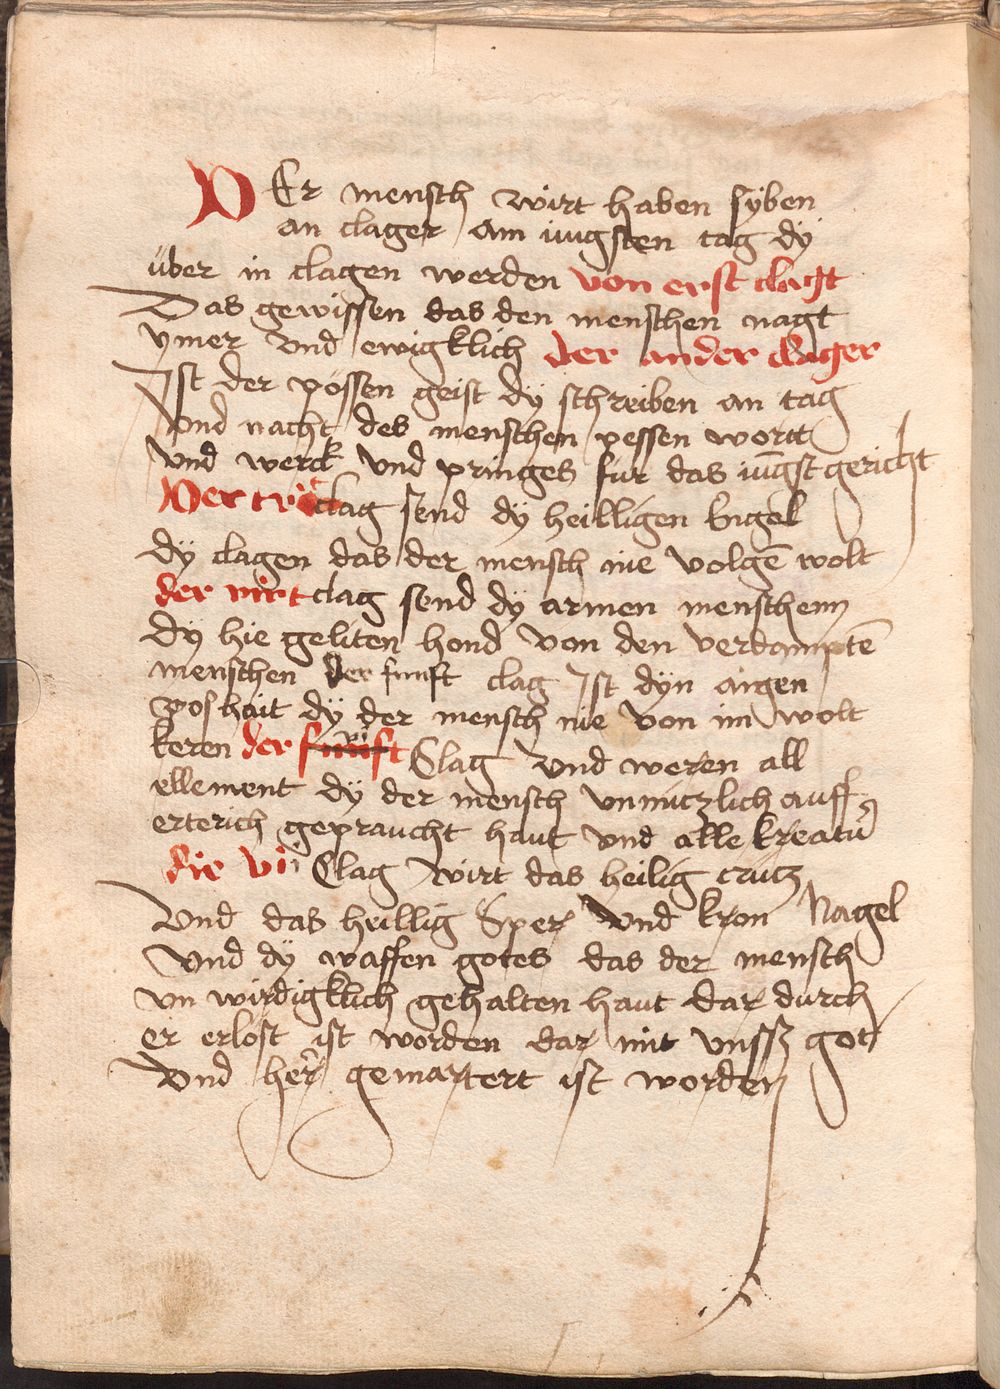 DEr mensch wirt haben syben
an clager am iungsten tag dÿ
über in clagen werden von erst clagt
Das gewissen das den menschen nagt
ymer vnd ewigklich der ander clager
Ist der pössen geist dÿ schreiben an tag
vnd nacht des menschen pessen wortt
vnd werck vnd pringes für das iu̅gst gericht
Der trit clag send dÿ heilligen Engel
dÿ clagen das der mensch nie volge̅ wolt
der virt clag send dÿ armen menschenn
dÿ hie geliten hond von den verdampte̅
menschen der funft clag Ist dyn aigen
poshait dÿ der mensch nie von im wolt
keren der funft vi Clag vnd weren all
ellement dÿ der mensch vnnutzlich auff
erterich gepraucht haut vnd alle kreatur
die vii Clag wirt das heilig crütz
Vnd das heillig Sper vnd kron Nagel
vnd dÿ waffen gotes das der mensch
vn wirdigklich gehalten haut dar durch
er erlöst ist worden dar mit vnssz got
vnd her gemartert ist worden